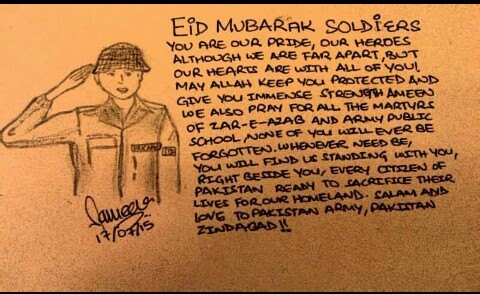 EID MUBARAK SOLDIERS
YOU ARE OUR PRIDE, OUR HEROES
ALTHOUGH WE ARE FAR APART, BUT
OUR HEARTS ARE WITH ALL OF YOU!
MAY ALLAH KEEP YOU PROTECTED AND
GIVE YOU IMMENSE STRENGTH AMEEN
WE ALSO PRAY FOR ALL THE MARTYRS
OF ZAR-E-AZAB AND ARMY PUBLIC
SCHOOL, NONE OF YOU WILL EVER BE
FORGOTTEN. WHENEVER NEED BE,
YOU WILL FIND US STANDING WITH YOU,
RIGHT BESIDE YOU, EVERY CITIZEN OF
PAKISTAN READY TO SACRIFICE THEIR
LIVES FOR OUR HOMELAND. SALAM AND
LOVE TO PAKISTAN ARMY, PAKISTAN
ZINDABAD!!
17/07/15